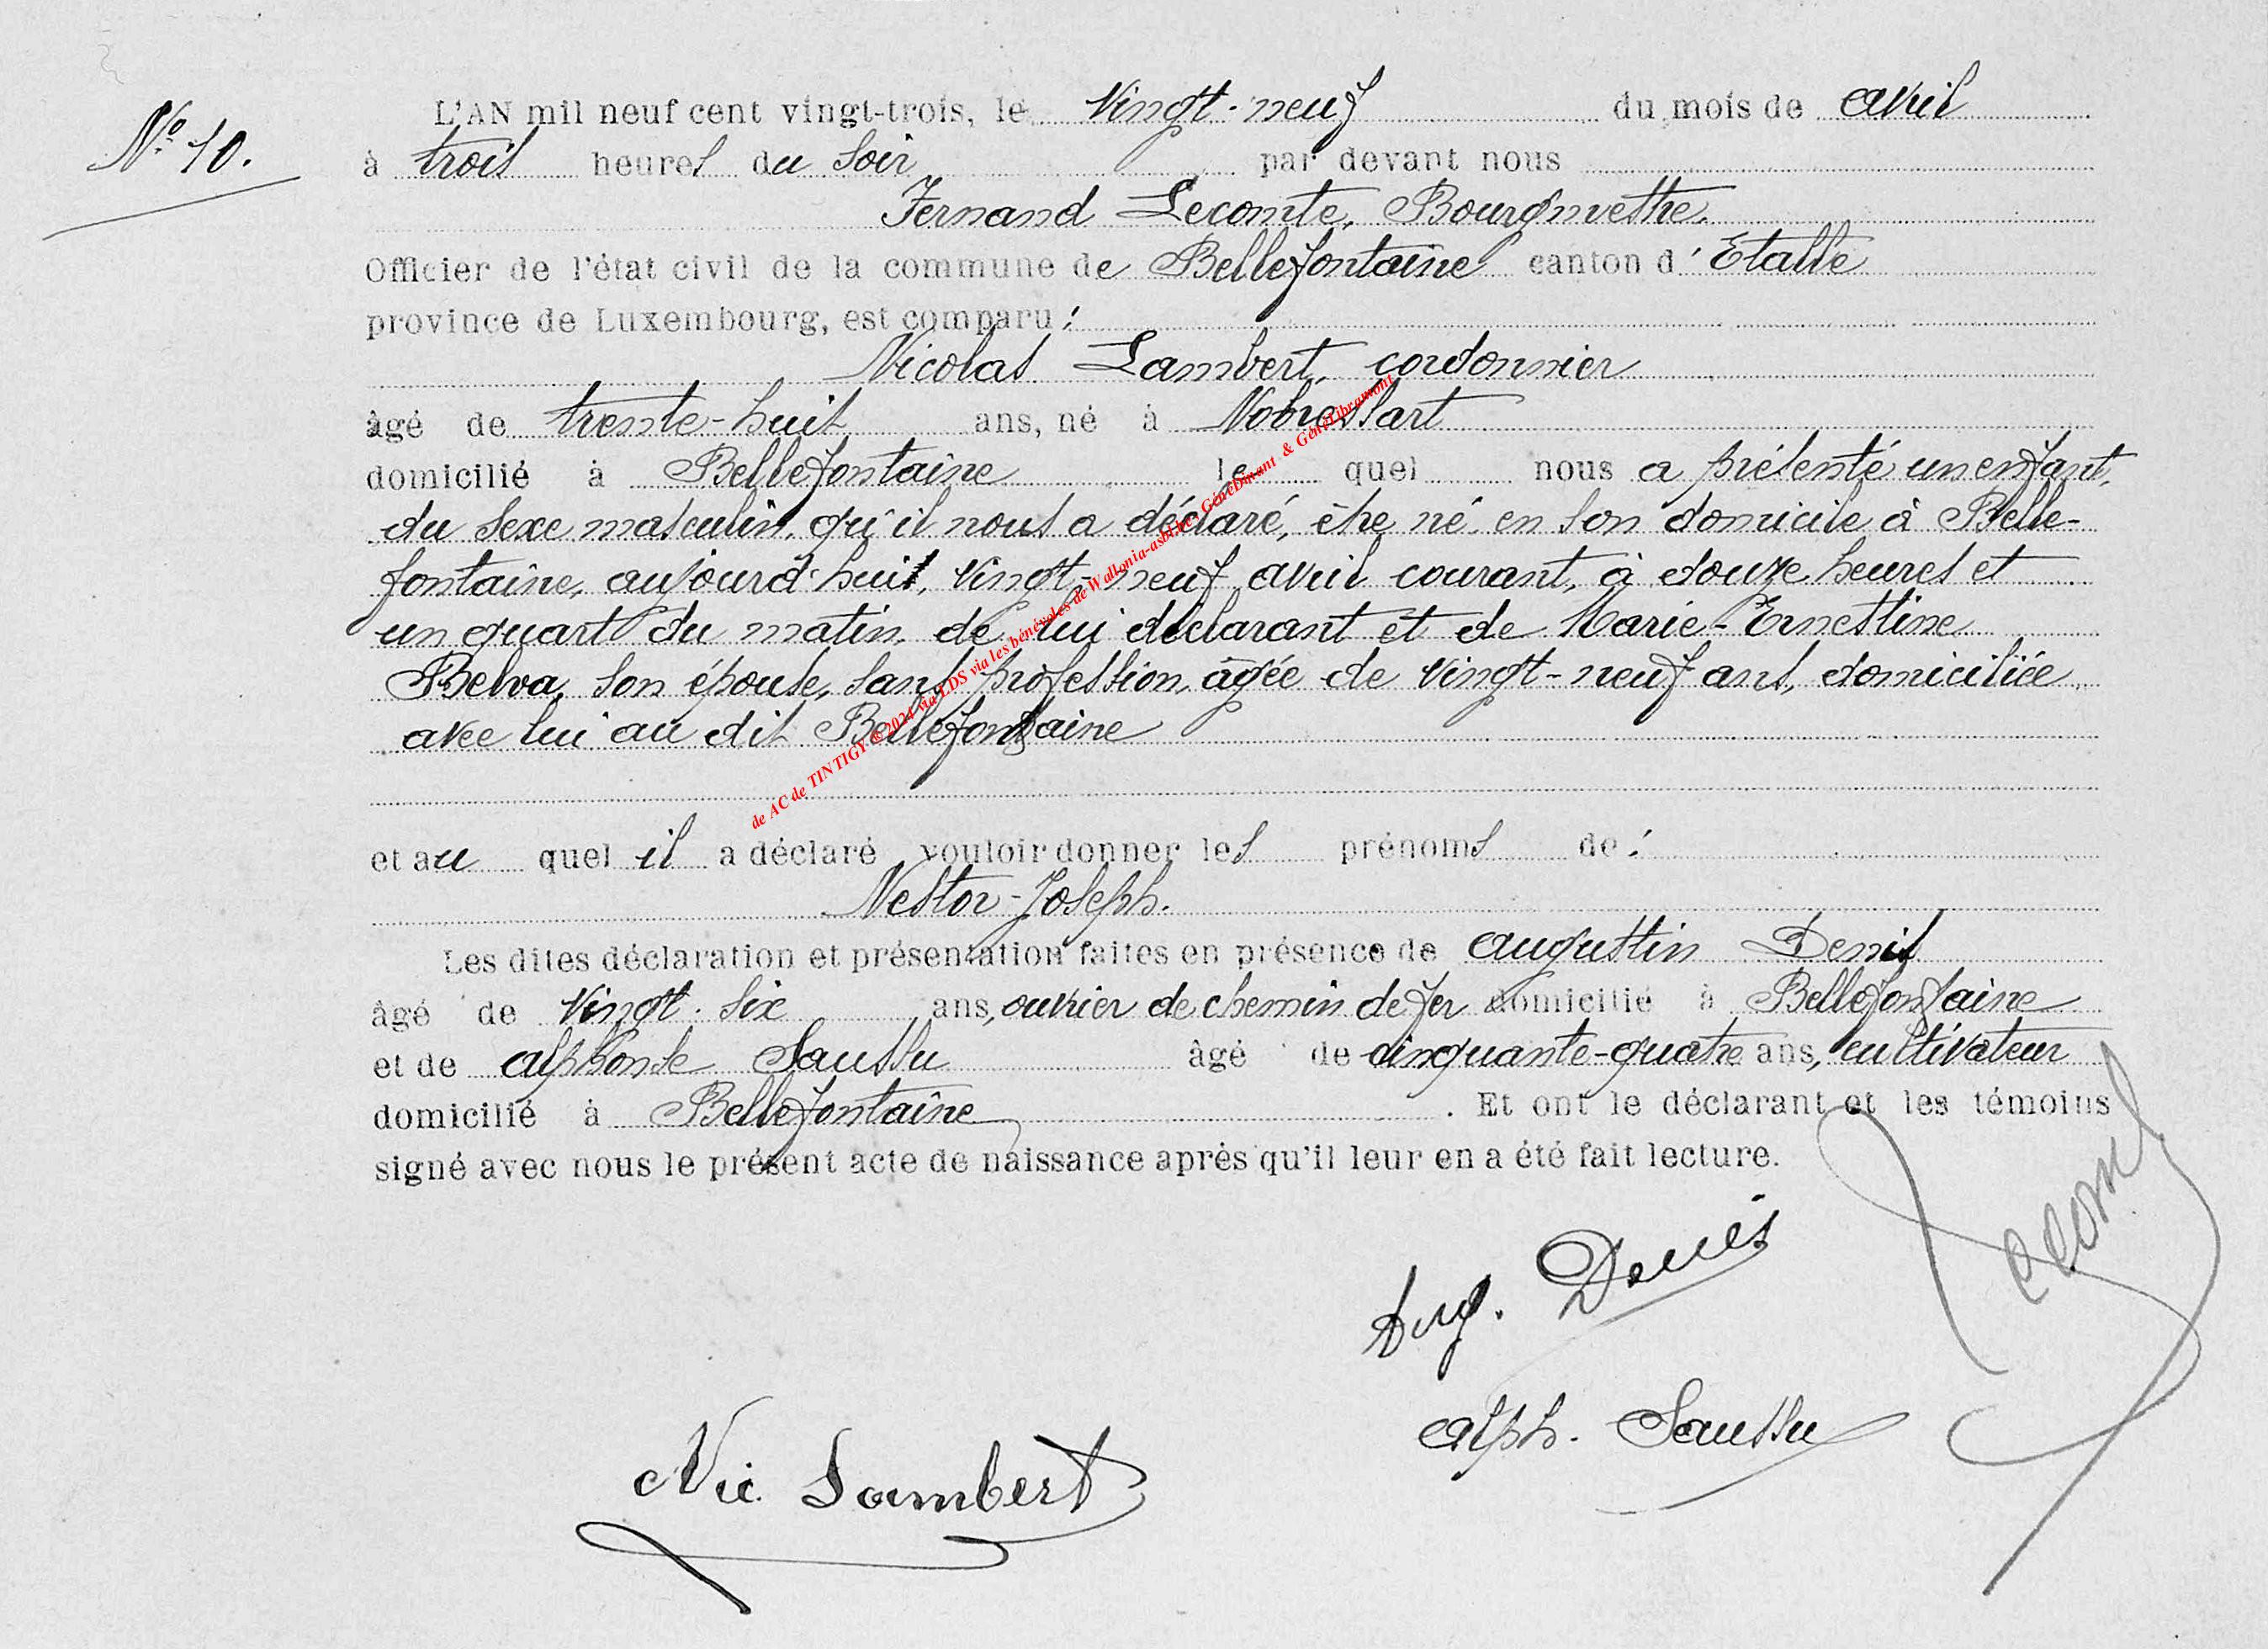 N° 10.
L'AN mil neuf cent vingt-trois, le Vingt-neuf du mois de avril
à trois heures du soir par devant nous
Fernand Lecomte, Bourgmestre.
Officier de l'état civil de la commune de Bellefontaine canton d'Etalle
province de Luxembourg, est comparu :
Nicolas Lambert, cordonnier
âgé de trente-huit ans, né à Nobressart
domicilié à Bellefontaine le quel nous a présenté un enfant,
du sexe masculin, qu'il nous a déclaré, être né en son domicile à Belle-
fontaine, aujourd'hui, vingt-neuf avril courant, à douze heures et
un quart du matin, de lui déclarant et de Marie-Ernestine
Belva, son épouse, sans profession, âgée de vingt-neuf ans, domiciliée
avec lui au dit Bellefontaine
et au quel il a déclaré vouloir donner les prénoms de :
Nestor-Joseph.
Les dites déclaration et présentation faites en présence de Augustin Denis
âgé de vingt-six ans, ouvrier de chemin de fer domicilié à Bellefontaine
et de Alphonse Saussu âgé de cinquante-quatre ans, cultivateur
domicilié à Bellefontaine . Et ont le déclarant et les témoins
signé avec nous le présent acte de naissance après qu'il leur en a été fait lecture.
Lecomte
Aug. Denis
Alph. Saussu
Nic. Lambert
de AC de TINTIGY © 2024 via LDS via les bénévoles de Wallonia-asbl.be, GénéDinant & GénéLibramont